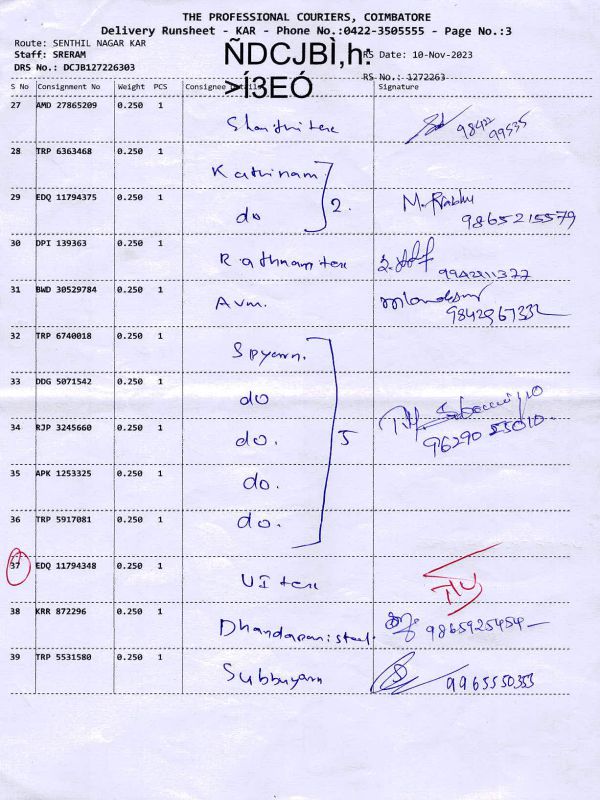 THE PROFESSIONAL COURIERS, COIMBATORE
Delivery Runsheet - KAR - Phone No.:0422-3505555 - Page No.:3
Route: SENTHIL NAGAR KAR
Staff: SRERAM RS Date: 10-Nov-2023
DRS No.: DCJB127226303
ÑDCJBÌ,h:
>Í3EÓ
RS No.: 1272263
S No Consignment No Weight PCS Consignee Details Signature
27 AMD 27865209 0.250 1 Shanthi tex 98422
99535
28 TRP 6363468 0.250 1 Kathinam
29 EDQ 11794375 0.250 1 do 2. M. Prabhu
9865215579
30 DPI 139363 0.250 1 Rathnam tex
31 BWD 30529784 0.250 1 Avm.
32 TRP 6740018 0.250 1 Spyarn.
33 DDG 5071542 0.250 1 do
34 RJP 3245660 0.250 1 do. 5
35 APK 1253325 0.250 1 do.
36 TRP 5917081 0.250 1 do.
37 EDQ 11794348 0.250 1 UI tex
38 KRR 872296 0.250 1 Dhandapani steel. 9865925454
39 TRP 5531580 0.250 1 Subbuyarn 9965550353